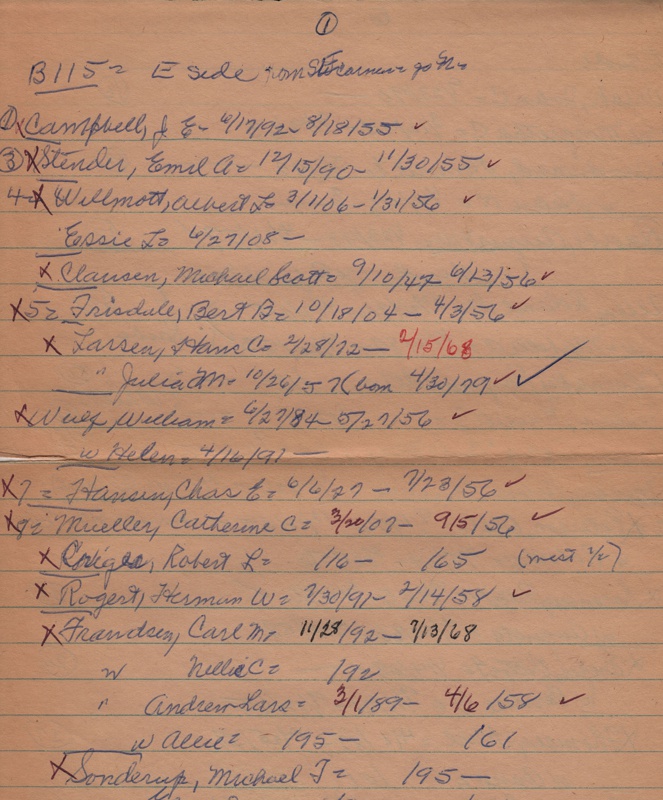 ①
B115 = E side from SE corner = go N =
① X Campbell, J E - 6/17/92 - 8/18/55 ✓
③ X Stender, Emil A = 12/15/90 - 11/30/55 ✓
4 - X Willmott, Albert L = 3/1/06 - 1/31/56 ✓
Essie L = 6/27/08 -
X Clausen, Michael Scott = 9/10/47 6/23/56 ✓
X 5 = Frisdale, Bert B = 10/18/04 - 4/3/56 ✓
X Larsen, Hans C = 2/28/72 - 2/15/68
" Julia M = 10/26/57 (born 4/30/79 ✓ ✓
X Wulf, William = 6/27/84 - 5/27/56 ✓
w Helen = 4/16/91 -
X 7 = Hansen, Chas E = 6/6/27 - 7/23/56 ✓
X 8 = Mueller, Catherine C = 3/20/07 - 9/5/56 ✓
X Robert L = 116 - 165 (west 1/2)
X Rogert, Herman W = 7/30/91 - 2/14/58 ✓
X Frandsen, Carl M = 11/28/92 - 7/13/68
w Nellie C = 192
" Andrew Lars = 3/1/89 - 4/6/58 ✓
w Allie = 195 - 161
X Sonderup, Michael T = 195 -